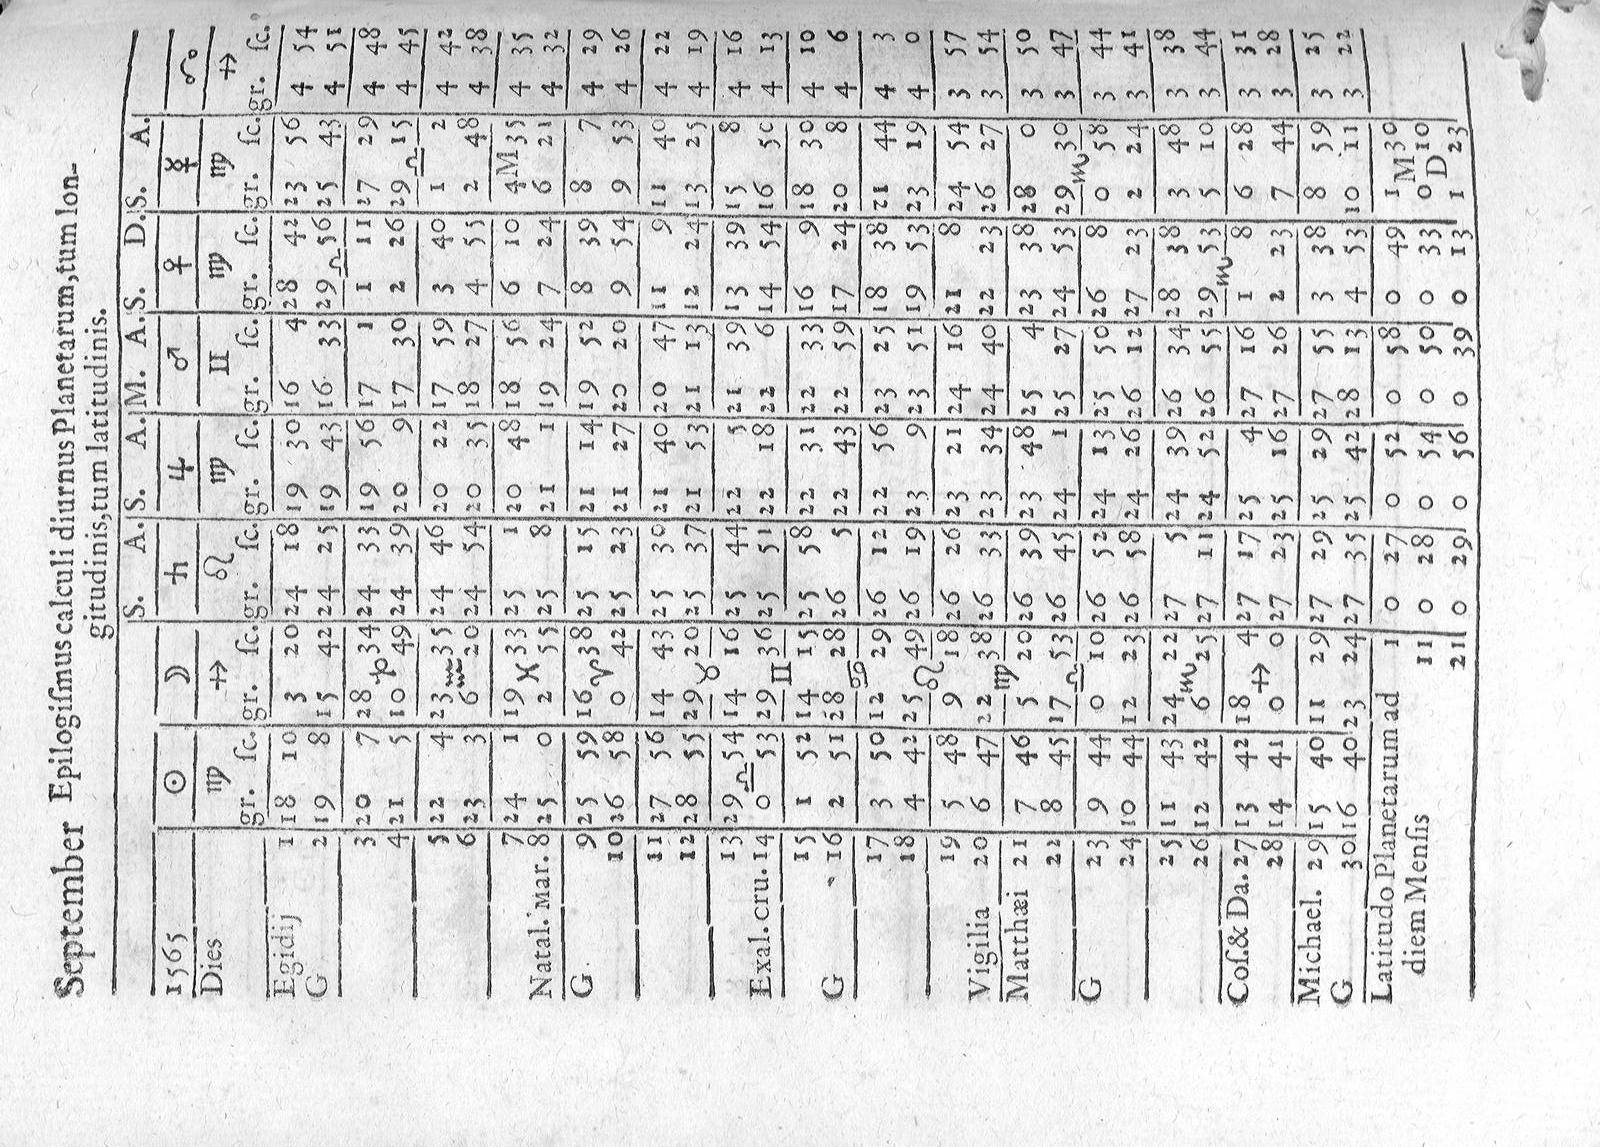 September Epilogiſmus calculi diurnus Planetarum, tum lon-
gitudinis, tum latitudinis.
S. A. S. A. M. A. S. D. S. A.
1565 ☉ ☽ ♄ ♃ ♂ ♀ ☿ ☊
Dies ♍ ♐ ♌ ♍ ♊ ♍ ♍ ♐
gr. ſc. gr. ſc. gr. ſc. gr. ſc. gr. ſc. gr. ſc. gr. ſc. gr. ſc.
Egidij 1 18 10 3 20 24 18 19 30 16 4 28 42 23 56 4 54
G 2 19 8 15 42 24 25 19 43 16 33 29 ♎ 56 25 43 4 51
3 20 7 28 34 24 33 19 56 17 1 1 11 27 29 4 48
4 21 5 10 ♑ 49 24 39 20 9 17 30 2 26 29 ♎ 15 4 45
5 22 4 23 35 24 46 20 22 17 59 3 40 1 2 4 42
6 23 3 6 ♒ 20 24 54 20 35 18 27 4 55 2 48 4 38
7 24 1 19 33 25 1 20 48 18 56 6 10 4 M 35 4 35
Natal. Mar. 8 25 0 2 ♓ 55 25 8 21 1 19 24 7 24 6 21 4 32
G 9 25 59 16 38 25 15 21 14 19 52 8 39 8 7 4 29
10 26 58 0 ♈ 42 25 23 21 27 20 20 9 54 9 53 4 26
11 27 56 14 43 25 30 21 40 20 47 11 9 11 40 4 22
12 28 55 29 20 25 37 21 53 21 13 12 24 13 25 4 19
13 29 ♎ 54 14 ♉ 16 25 44 22 5 21 39 13 39 15 8 4 16
Exal. cru. 14 0 53 29 36 25 51 22 18 22 6 14 54 16 50 4 13
15 1 52 14 ♊ 15 25 58 22 31 22 33 16 9 18 30 4 10
G 16 2 51 28 28 26 5 22 43 22 59 17 24 20 8 4 6
17 3 50 12 ♋ 29 26 12 22 56 23 25 18 38 21 44 4 3
18 4 42 25 49 26 19 23 9 23 51 19 53 23 19 4 0
19 5 48 9 ♌ 18 26 26 23 21 24 16 21 8 24 54 3 57
Vigilia 20 6 47 22 38 26 33 23 34 24 40 22 23 26 27 3 54
Matthæi 21 7 46 5 ♍ 20 26 39 23 48 25 4 23 38 28 0 3 50
22 8 45 17 53 26 45 24 1 25 27 24 53 29 ♏ 30 3 47
G 23 9 44 0 ♎ 10 26 52 24 13 25 50 26 8 0 58 3 44
24 10 44 12 23 26 58 24 26 26 12 27 23 2 24 3 41
25 11 43 24 22 27 5 24 39 26 34 28 38 3 48 3 38
26 12 42 6 ♏ 25 27 11 24 52 26 55 29 ♏ 53 5 10 3 44
Coſ. & Da. 27 13 42 18 4 27 17 25 4 27 16 1 8 6 28 3 31
28 14 41 0 ♐ 0 27 23 25 16 27 26 2 23 7 44 3 28
Michael. 29 15 40 11 29 27 29 25 29 27 55 3 38 8 59 3 25
G 30 16 40 23 24 27 35 25 42 28 13 4 53 10 11 3 22
Latitudo Planetarum ad 1 0 27 0 52 0 58 0 49 1 M 30
diem Menſis 11 0 28 0 54 0 50 0 33 0 D 10
21 0 29 0 56 0 39 0 13 1 23